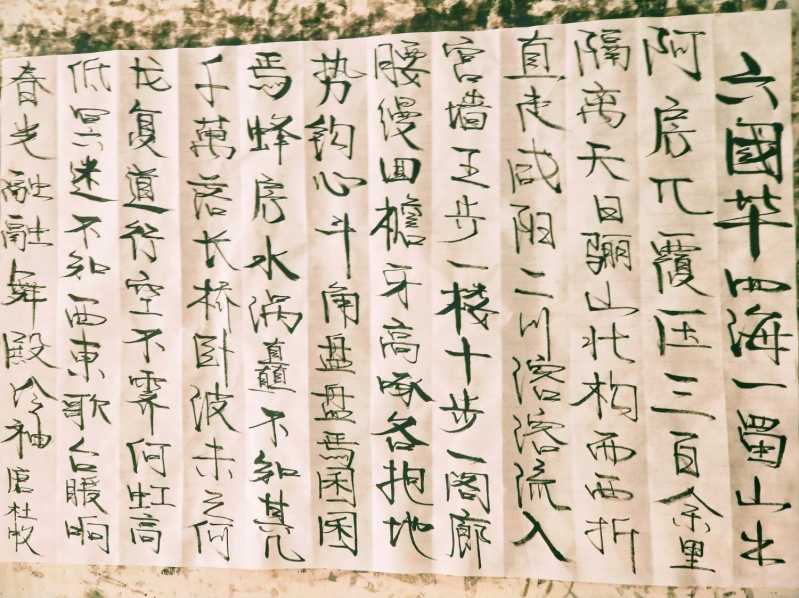 六國毕四海一蜀山出
阿房兀覆压三百余里
隔离天日骊山北构而西折
直走咸阳二川溶溶流入
宫墙五步一楼十步一阁廊
腰缦回檐牙高啄各抱地
势钩心斗角盘盘焉囷囷
焉蜂房水涡矗不知其几
千萬落长桥卧波未云何
龙复道行空不霁何虹高
低冥迷不知西東歌台暖响
春光融融舞殿冷袖唐杜牧